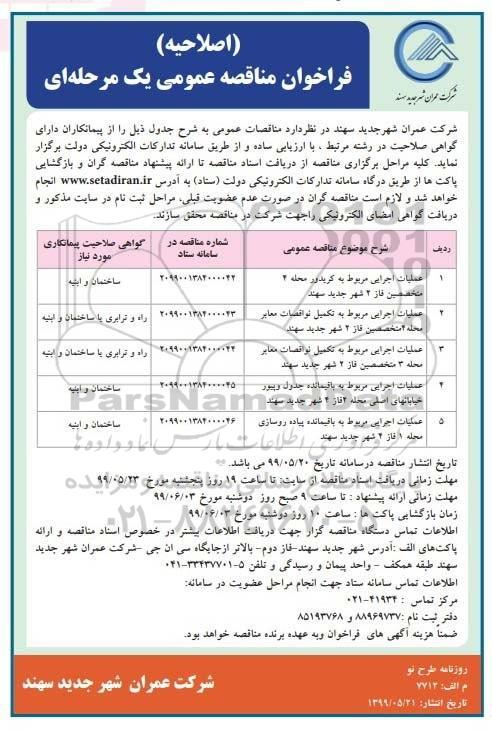 (اصلاحیه)
فراخوان مناقصه عمومی یک مرحله‌ای
شرکت عمران شهر جدید سهند
شرکت عمران شهرجدید سهند در نظردارد مناقصات عمومی به شرح جدول ذیل را از پیمانکاران دارای
گواهی صلاحیت در رشته مرتبط ، با ارزیابی ساده و از طریق سامانه تدارکات الکترونیکی دولت برگزار
نماید. کلیه مراحل برگزاری مناقصه از دریافت اسناد مناقصه تا ارائه پیشنهاد مناقصه گران و بازگشایی
پاکت ها از طریق درگاه سامانه تدارکات الکترونیکی دولت (ستاد) به آدرس www.setadiran.ir انجام
خواهد شد و لازم است مناقصه گران در صورت عدم عضویت قبلی، مراحل ثبت نام در سایت مذکور و
دریافت گواهی امضای الکترونیکی راجهت شرکت در مناقصه محقق سازند.
ردیف شرح موضوع مناقصه عمومی شماره مناقصه در سامانه ستاد گواهی صلاحیت پیمانکاری مورد نیاز
۱ عملیات اجرایی مربوط به کریدور محله ۴ متخصصین فاز ۲ شهر جدید سهند ۲۰۹۹۰۰۱۳۸۴۰۰۰۰۴۲ ساختمان و ابنیه
۲ عملیات اجرایی مربوط به تکمیل نواقصات معابر محله۴متخصصین فاز ۲ شهر جدید سهند ۲۰۹۹۰۰۱۳۸۴۰۰۰۰۴۳ راه و ترابری یا ساختمان و ابنیه
۳ عملیات اجرایی مربوط به تکمیل نواقصات معابر محله ۳ متخصصین فاز ۲ شهر جدید سهند ۲۰۹۹۰۰۱۳۸۴۰۰۰۰۴۴ راه و ترابری یا ساختمان و ابنیه
۴ عملیات اجرایی مربوط به باقیمانده جدول وپیور خیابانهای اصلی محله ۲فاز ۴ شهر جدید سهند ۲۰۹۹۰۰۱۳۸۴۰۰۰۰۴۵ ساختمان و ابنیه
۵ عملیات اجرایی مربوط به باقیمانده پیاده روسازی محله ۱ فاز ۴ شهر جدید سهند ۲۰۹۹۰۰۱۳۸۴۰۰۰۰۴۶ ساختمان و ابنیه
ParsNamadData
تاریخ انتشار مناقصه درسامانه تاریخ ۹۹/۰۵/۲۰ می باشد.
مهلت زمانی دریافت اسناد مناقصه از سایت: تا ساعت ۱۹ روز پنجشنبه مورخ ۹۹/۰۵/۲۳
مهلت زمانی ارائه پیشنهاد : تا ساعت ۹ صبح روز دوشنبه مورخ ۹۹/۰۶/۰۳
زمان بازگشایی پاکت ها : ساعت ۱۰ روز دوشنبه مورخ ۹۹/۰۶/۰۳
اطلاعات تماس دستگاه مناقصه گزار جهت دریافت اطلاعات بیشتر در خصوص اسناد مناقصه و ارائه
پاکت‌های الف :آدرس شهر جدید سهند-فاز دوم- بالاتر ازجایگاه سی ان جی –شرکت عمران شهر جدید
سهند طبقه همکف – واحد پیمان و رسیدگی و تلفن ۵-۳۳۴۳۷۷۰۱-۰۴۱
اطلاعات تماس سامانه ستاد جهت انجام مراحل عضویت در سامانه:
مرکز تماس : ۴۱۹۳۴-۰۲۱
دفتر ثبت نام :۸۸۹۶۹۷۳۷ و ۸۵۱۹۳۷۶۸
ضمناً هزینه آگهی های فراخوان وبه عهده برنده مناقصه خواهد بود.
روزنامه طرح نو
م الف: ۷۷۱۲
تاریخ انتشار: ۱۳۹۹/۰۵/۲۱
شرکت عمران شهر جدید سهند